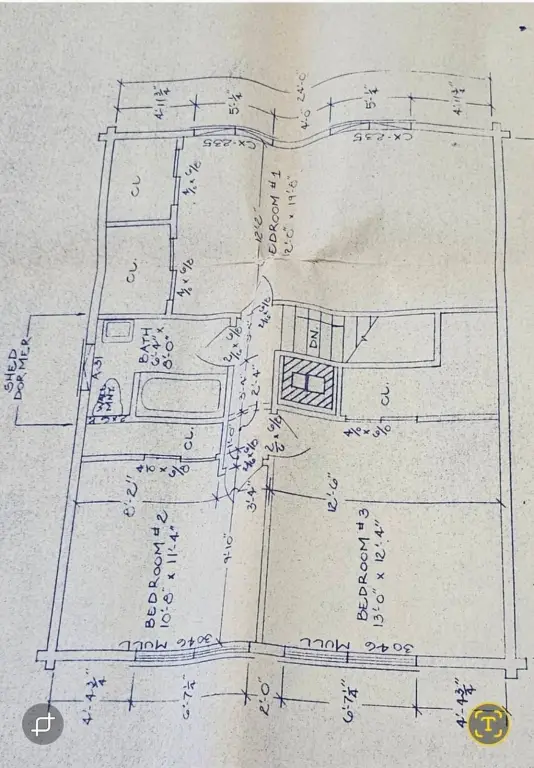 4'-11 3/4"
5'-4"
4'-0"
24'-0"
5'-4"
4'-11 3/4"
CX-235
CX-235
CL.
4/0 x 6/8
CL.
4/0 x 6/8
BEDROOM #1
12'-0" x 19'-8"
12'-2"
SHED
DORMER
A-31
BATH
6'-4" x
8'-0"
WALL
HNY.
2/0 x 6/8
2/6 x 6/8
DN.
3'-4"
2'-4"
CL.
4/0 x 6/8
CL.
4/0 x 6/8
1'-0"
2/6 x 6/8
2/6 x 6/8
8'-2"
3'-4"
12'-6"
9'-10"
BEDROOM #2
10'-8" x 11'-4"
BEDROOM #3
13'-0" x 12'-4"
3046
MULL
3046
MULL
4'-4 3/4"
6'-7 1/4"
2'-0"
6'-7 1/4"
4'-4 3/4"
T